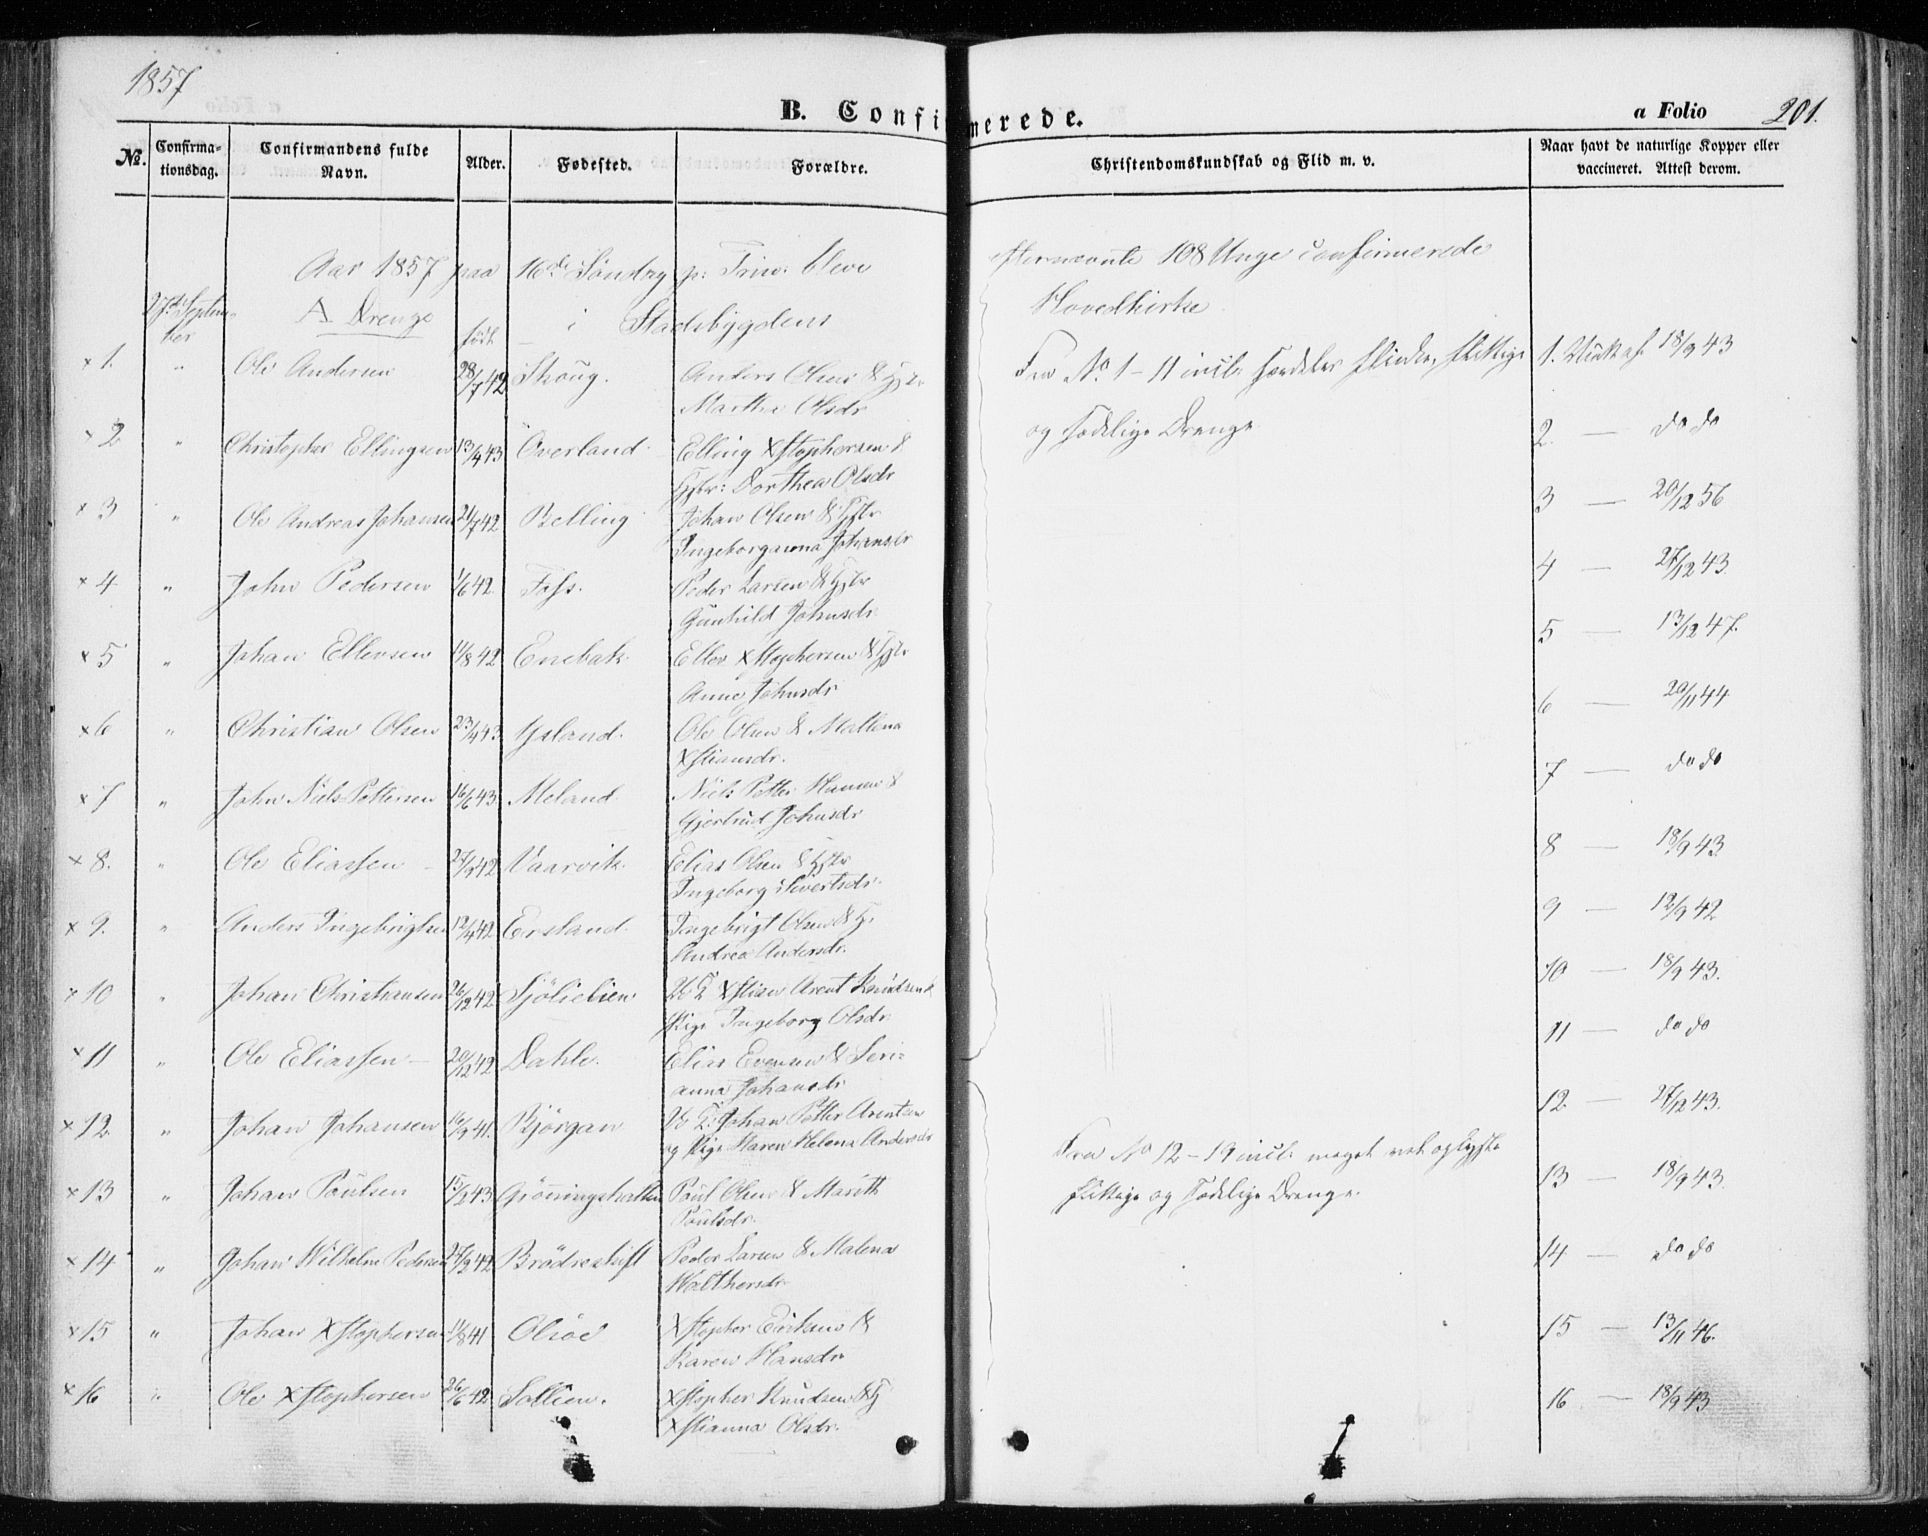 1857
B. Confirmerede.
a Folio 201.
No. Confirmationsdag. Confirmandens fulde Navn. Alder. Fødested. Forældre. Christendomskundskab og Flid m. v. Naar havt de naturlige Kopper eller vaccineret. Attest derom.
Aar 1857 paa 16de Søndag p: Trin: bleve efternævnte 108 Unge confirmerede
27de September A Drenge i Stadsbygdens Hovedkirke
født
×1. " Ole Andersen 28/7 42 Skoug. Anders Olsen & Hstr Fra No 1–11 incl: særdeles flinke, flittige 1. 18/9 43
Marthe Olsdr og sædelige Drenge
×2 " Christopher Ellingsen 13/4 43 Överland. Elling Xstophersen & 2. — do do
Hstr: Dorthea Olsdr
×3 " Ole Andreas Johansen 21/7 42 Belling Johan Olsen & Hstr 3 — 20/12 56
Ingeborganna Johansdr
×4 " John Pedersen 1/6 42. Foss. Peder Larsen & Hstr 4 — 27/12 43.
Gunhild Johnsdr.
×5 " Johan Ellevsen 11/8 42 Enebak. Ellev Xstophersen & Hstr 5 — 13/12 47.
Anne Johnsdr
×6 " Christian Olsen 23/4 43. Ysland. Ole Olsen & Mallena 6 — 20/11 44
Xstiansdr.
×7 " John Niels Pettersen 16/6 43 Meland Niels Petter Hansen & 7 — do do
Gjertrud Johnsdr
×8. " Ole Eliassen — 27/9 42 Vaarvik. Elias Olsen & Hstr 8 — 18/9 43.
Ingeborg Sivertsdr.
×9. " Anders Ingebrigtsen 12/4 42 Ersland. Ingebrigt Olsen & H. 9 — 12/9 42
Andrea Andersdr.
×10 " Johan Christiansen 26/12 42 Sjölielien. Xstian Arent Knudsen & 10 — 18/9 43.
Pige Ingeborg Olsdr
×11 " Ole Eliassen — 20/12 42 Dahle. Elias Evensen & Seri- 11 — do do
anna Johansdr
×12. " Johan Johansen 16/9 41. Björgan Johan Petter Arentsen Fra No 12–19 incl: meget vel oplyste 12 — 27/12 43.
og Pige Maren Helena Andersdr flittige og sædelige Drenge.
×13 " Johan Poulsen 15/2 43 Grönningsbakken Poul Olsen & Marith 13 — 18/9 43.
Poulsdr.
×14 " Johan Wilhelm Pedersen 27/2 42 Brödreskift Peder Larsen & Malena 14 — do do
Walthersdr
×15 " Johan Xstophersen 11/8 41 Olsöe Xstopher Eriksen & 15 — 13/11 46.
Karen Hansdr
×16 " Ole Xstophersen 26/6 42 Sollien. Xstopher Knudsen & H 16 — 18/9 43
Xstianna Olsdr.